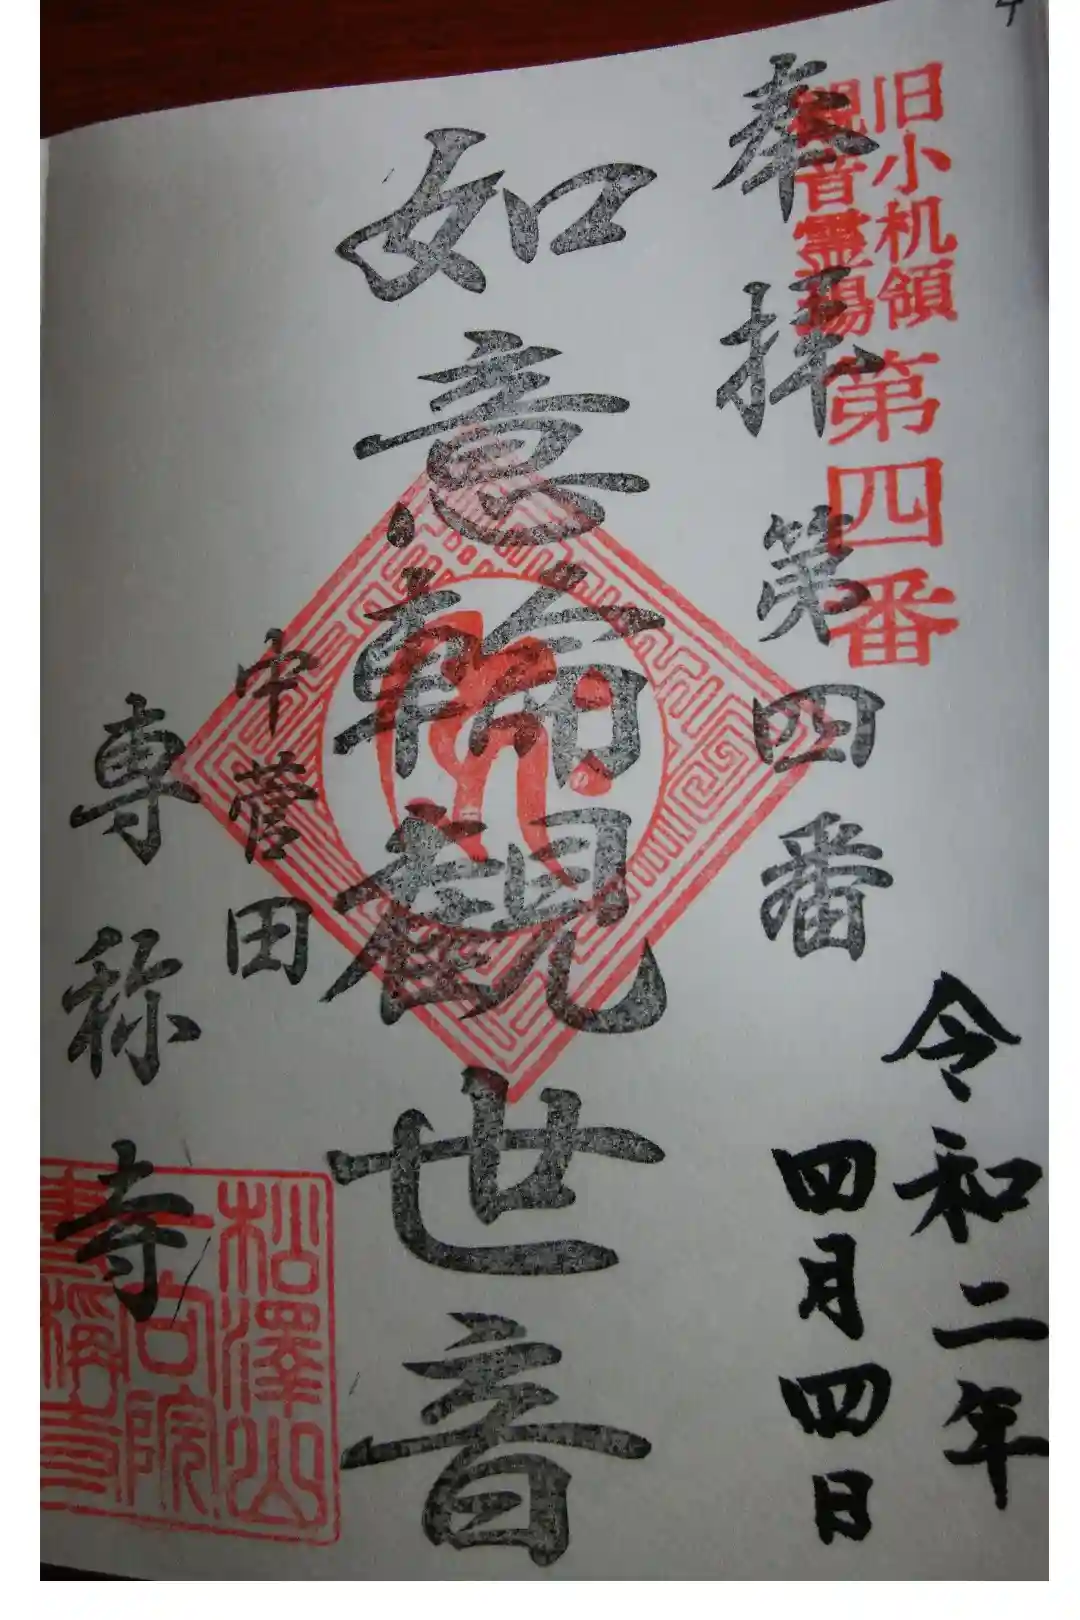 旧小机領
観音霊場
第四番
奉拝第四番
令和二年
四月四日
如意輪観世音
中菅田
専称寺
松澤山
専稱寺